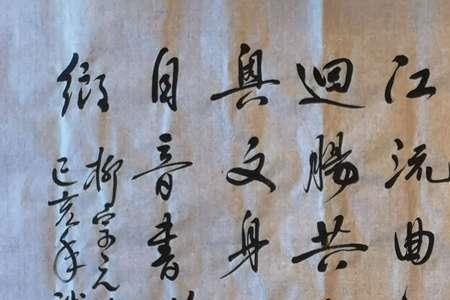 江流曲
迴腸共
粵文身
自音書
鄉
柳宗元
己亥年